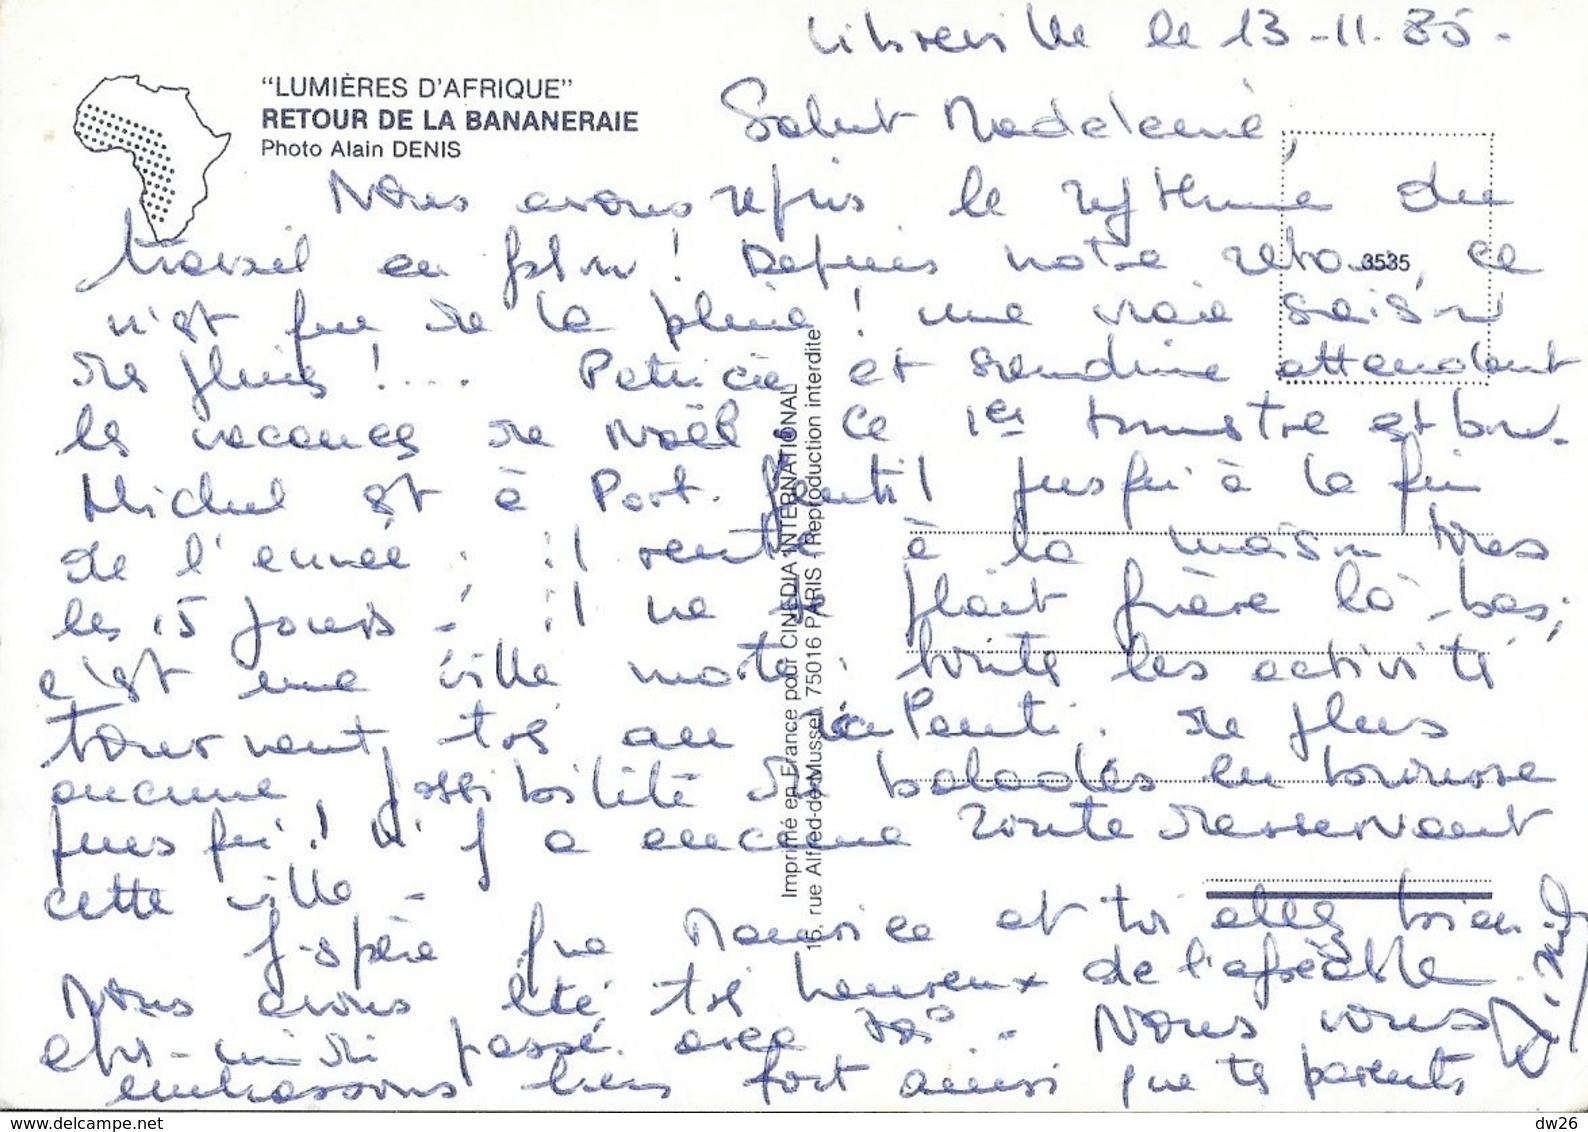 Libreville le 13-11.85.
"LUMIÈRES D'AFRIQUE"
RETOUR DE LA BANANERAIE
Photo Alain DENIS
Salut Madeleine,
Nous avons repris le rythme du
travail en plein! Depuis notre retour, ce
3535
n'est que de la pluie! une vraie saison
des pluies!.... Patricia et Sandrine attendent
les vacances de Noël. Ce 1er trimestre est long.
Michel est à Port. Gentil jusqu'à la fin
de l'année; il rentre à la maison tous
les 15 jours - il ne se plait guère là-bas;
c'est une ville morte: toute les activité
tournent, très au ralenti. De plus
aucune possibilité de balades en brousse
puisqu'il n'y a aucune route desservant
cette ville -
J'espère que Maurice et toi allez bien
Nous avons été très heureux de l'agréable
après-midi passé avec vs. - Nous vous
embrassons bien fort ainsi que tes parents
Imprimé en France pour CINÉDIA INTERNATIONAL
16, rue Alfred-de-Musset, 75016 PARIS - Reproduction interdite
delcampe.net
dw26